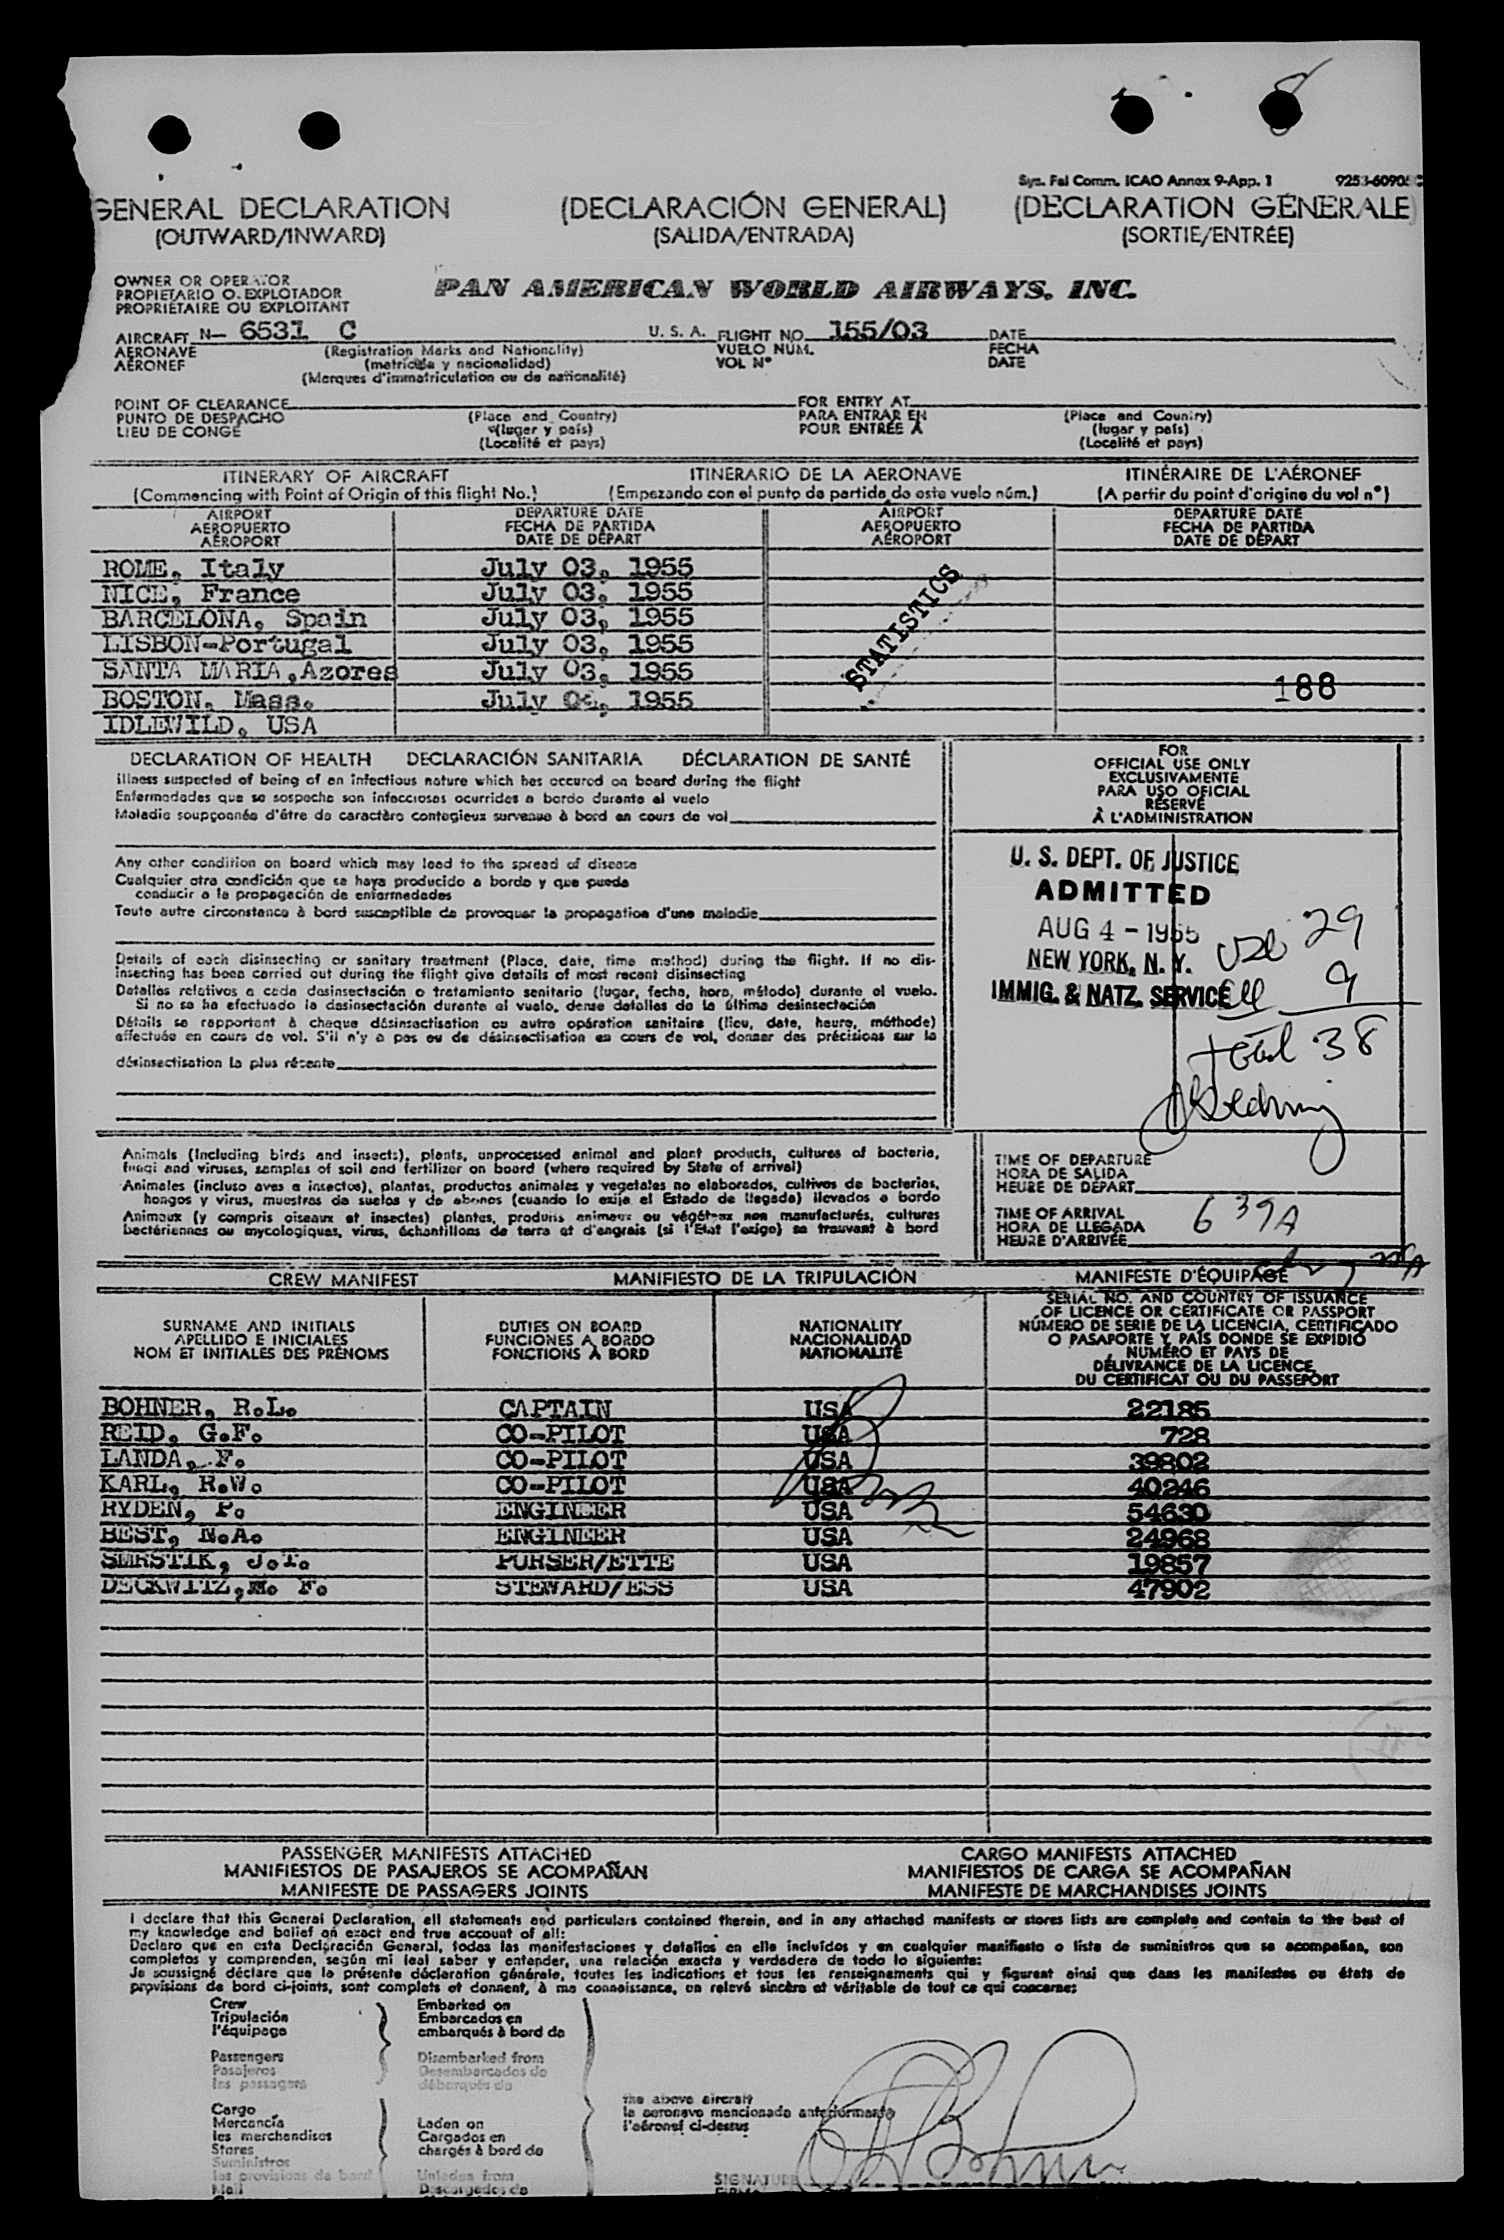 Sys. Fal Comm. ICAO Annex 9-App. 1
GENERAL DECLARATION (DECLARACIÓN GENERAL) (DECLARATION GÉNERALE)
(OUTWARD/INWARD) (SALIDA/ENTRADA) (SORTIE/ENTRÉE)
OWNER OR OPERATOR
PROPIETARIO O EXPLOTADOR PAN AMERICAN WORLD AIRWAYS, INC.
PROPRIÉTAIRE OU EXPLOITANT
AIRCRAFT N- 6531 C U. S. A. FLIGHT NO. 155/03 DATE
AERONAVE (Registration Marks and Nationality) VUELO NÚM. FECHA
AÉRONEF (matrícula y nacionalidad) VOL Nº DATE
(Marques d'immatriculation ou de nationalité)
POINT OF CLEARANCE FOR ENTRY AT
PUNTO DE DESPACHO (Place and Country) PARA ENTRAR EN (Place and Country)
LIEU DE CONGÉ (lugar y país) POUR ENTRÉE À (lugar y país)
(Localité et pays) (Localité et pays)
ITINERARY OF AIRCRAFT ITINERARIO DE LA AERONAVE ITINÉRAIRE DE L'AÉRONEF
(Commencing with Point of Origin of this flight No.) (Empezando con el punto de partida de este vuelo núm.) (A partir du point d'origine du vol nº)
AIRPORT DEPARTURE DATE AIRPORT DEPARTURE DATE
AEROPUERTO FECHA DE PARTIDA AEROPUERTO FECHA DE PARTIDA
AÉROPORT DATE DE DÉPART AÉROPORT DATE DE DÉPART
ROME, Italy July 03, 1955
NICE, France July 03, 1955
BARCELONA, Spain July 03, 1955
LISBON-Portugal July 03, 1955
SANTA MARIA,Azores July 03, 1955
BOSTON, Mass. July 1955
IDLEWILD, USA
STATISTICS
188
DECLARATION OF HEALTH DECLARACIÓN SANITARIA DÉCLARATION DE SANTÉ
Illness suspected of being of an infectious nature which has occured on board during the flight
Enfermedades que se sospeche son infecciosas ocurridas a bordo durante el vuelo
Maladie soupçonnée d'être de caractère contagieux survenue à bord en cours de vol
Any other condition on board which may lead to the spread of disease
Cualquier otra condición que se haya producido a bordo y que pueda
conducir a la propagación de enfermedades
Toute autre circonstance à bord susceptible de provoquer la propagation d'une maladie
Details of each disinsecting or sanitary treatment (Place, date, time method) during the flight. If no dis-
insecting has been carried out during the flight give details of most recent disinsecting
Detalles relativos a cada desinsectación o tratamiento sanitario (lugar, fecha, hora, método) durante el vuelo.
Si no se ha efectuado la desinsectación durante el vuelo, dense detalles de la última desinsectación
Détails se rapportant à chaque désinsectisation ou autre opération sanitaire (lieu, date, heure, méthode)
effectuée en cours de vol. S'il n'y a pas eu de désinsectisation en cours de vol, donner des précisions sur la
désinsectisation la plus récente
FOR
OFFICIAL USE ONLY
EXCLUSIVAMENTE
PARA USO OFICIAL
RÉSERVÉ
À L'ADMINISTRATION
U. S. DEPT. OF JUSTICE
ADMITTED
AUG 4 - 1955
NEW YORK, N. Y.
IMMIG. & NATZ. SERVICE
29
9
total 38
Animals (including birds and insects), plants, unprocessed animal and plant products, cultures of bacteria,
fungi and viruses, samples of soil and fertilizer on board (where required by State of arrival)
Animales (incluso aves e insectos), plantas, productos animales y vegetales no elaborados, cultivos de bacterias,
hongos y virus, muestras de suelos y de abonos (cuando lo exija el Estado de llegada) llevados a bordo
Animaux (y compris oiseaux et insectes) plantes, produits animaux ou végétaux non manufacturés, cultures
bactériennes ou mycologiques, virus, échantillons de terre et d'engrais (si l'Etat l'exige) se trouvant à bord
TIME OF DEPARTURE
HORA DE SALIDA
HEURE DE DÉPART
TIME OF ARRIVAL
HORA DE LLEGADA 639A
HEURE D'ARRIVÉE
CREW MANIFEST MANIFIESTO DE LA TRIPULACIÓN MANIFESTE D'ÉQUIPAGE
SURNAME AND INITIALS
APELLIDO E INICIALES
NOM ET INITIALES DES PRÉNOMS
DUTIES ON BOARD
FUNCIONES A BORDO
FONCTIONS À BORD
NATIONALITY
NACIONALIDAD
NATIONALITÉ
SERIAL NO. AND COUNTRY OF ISSUANCE
OF LICENCE OR CERTIFICATE OR PASSPORT
NÚMERO DE SERIE DE LA LICENCIA, CERTIFICADO
O PASAPORTE Y PAÍS DONDE SE EXPIDIÓ
NUMÉRO ET PAYS DE
DÉLIVRANCE DE LA LICENCE,
DU CERTIFICAT OU DU PASSEPORT
BOHNER, R.L. CAPTAIN USA 22185
REID, G.F. CO-PILOT USA 728
LANDA, F. CO-PILOT USA 39802
KARL, R.W. CO-PILOT USA 40246
RYDEN, P. ENGINEER USA 54630
BEST, N.A. ENGINEER USA 24968
SMRSTIK, J.T. PURSER/ETTE USA 19857
DECKWITZ,M. F. STEWARD/ESS USA 47902
PASSENGER MANIFESTS ATTACHED CARGO MANIFESTS ATTACHED
MANIFIESTOS DE PASAJEROS SE ACOMPAÑAN MANIFIESTOS DE CARGA SE ACOMPAÑAN
MANIFESTE DE PASSAGERS JOINTS MANIFESTE DE MARCHANDISES JOINTS
I declare that this General Declaration, all statements and particulars contained therein, and in any attached manifests or stores lists are complete and contain to the best of
my knowledge and belief an exact and true account of all:
Declaro que en esta Declaración General, todas las manifestaciones y detalles en ella incluidos y en cualquier manifiesto o lista de suministros que se acompañan, son
completos y comprenden, según mi leal saber y entender, una relación exacta y verdadera de todo lo siguiente:
Je soussigné déclare que la présente déclaration générale, toutes les indications et tous les renseignements qui y figurent ainsi que dans les manifestes ou états de
provisions de bord ci-joints, sont complets et donnent, à ma connaissance, un relevé sincère et véritable de tout ce qui concerne:
Crew Embarked on
Tripulación Embarcados en
l'équipage embarqués à bord de
Passengers Disembarked from
Pasajeros Desembarcados de
les passagers débarqués de
the above aircraft
la aeronave mencionada anteriormente
l'aéronef ci-dessus
Cargo
Mercancía Laden on
les merchandises Cargados en
Stores chargés à bord de
Suministros
les provisions de bord Unladen from
Mail Descargados de
SIGNATURE